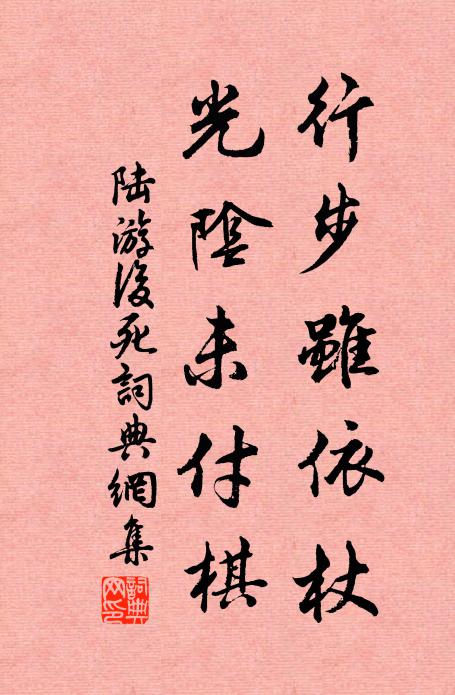 行步雖依杖
光陰未付棋
陸游後死詞典網集
詞典網印